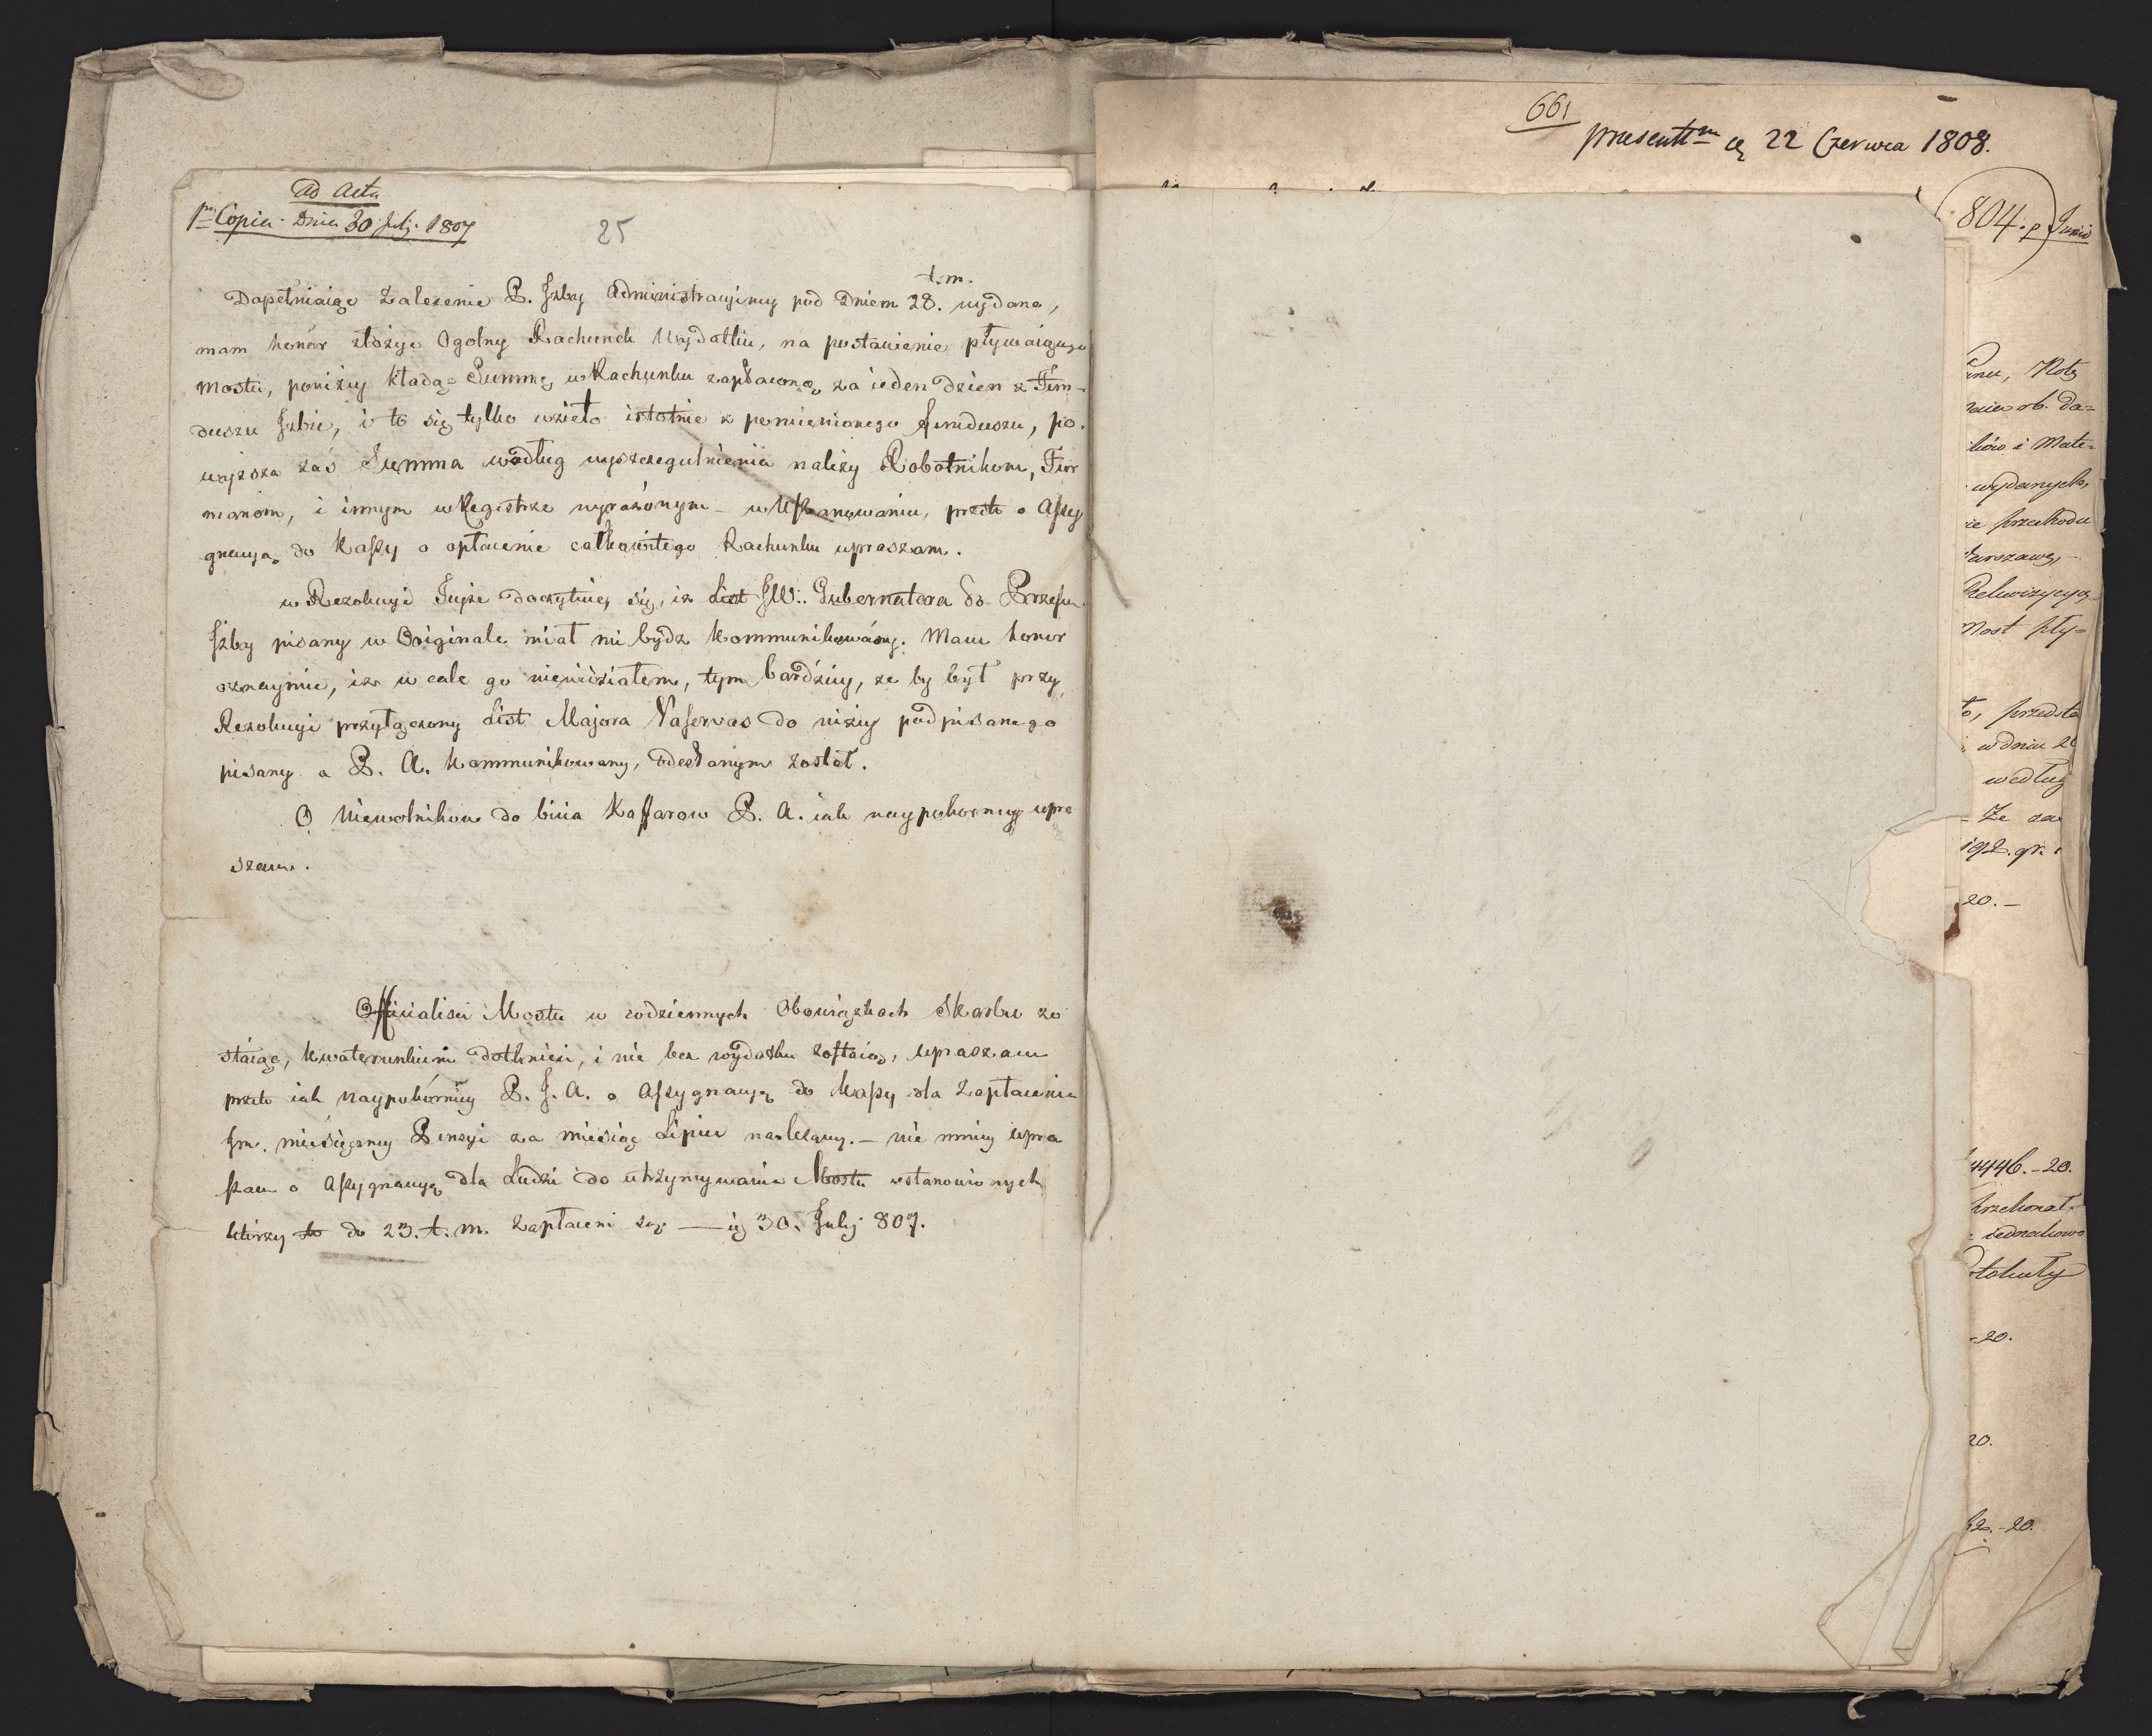 Ad Acta
pm Copia. Dnia 30 Julj. 1807
25
t. m.
Dopełniaiąc Zalecenie P. Izby Administracyiney pod Dniem 28. wydane,
mam honor złożyć Ogolny Rachunek Wydatku, na postawienie pływaiącego
Mostu, poniżey kładąc Summę w Rachunku zapłaconą za ieden dzien z Fun-
duszu Izbie, i to się tylko wzieło istotnie z pomienionego funduszu, po-
wyższa zaś Summa według wyszczegulnienia należy Robotnikom, Fur
manom, i innym w Regestrze wyrażonym – przeto o Assy
gnacyą do Kassy o opłacenie całkowitego Rachunku upraszam.
w Rezolucyi Teyże doczytuię się, iż List JW. Gubernatora do Prezesa
Izby pisany w Originale miał mi bydz kommunikowány. Mam honor
oznaymic, iż w cale go niewidziałem, tym bardziey, że by był przy
Rezolucyi przyłączony List Majora do niżey podpisanego
pisany a P. A. kommunikowany, odesłanym został.
O Niewolnikow do bicia Kaffarow P. A. iak naypokorniey upra
szam.
Officialisci Mostu w codziennych Obowiązkach Skarbu zo
stáiąc, kwaterunkiem dotknięci, i nie bez wydatku zostaią, upraszam
przeto iak Naypokórniey P. I. A. o Assygnacyą do Kassy dla Zapłacenia
Im. miesięczney Pensyi za miesiąc Lipiec należącey. – nie mniey upra
szam o Assygnacyą dla Ludzi do utrzymywania Mostu ustanowionych
którzy to do 23. t. m. Zapłaceni są — 30. Julj 807.
661
22 Czerwca 1808.
804. p Junio
Noty
Da=
ików i Mate=
wydanych,
ie przechodu
Warszawę, –
Rekwizycyą
Most pły=
to, przedsta
w dniu 20
według
– Że
192. gr.
20. –
4446. – 20.
przekonał
iednakowo
20.
20.
– 20.